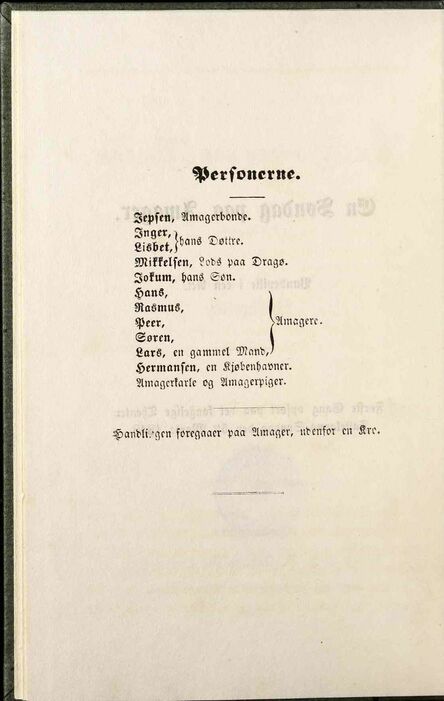 Personerne.
Jepsen, Amagerbonde.
Inger,
Lisbet, } hans Døttre.
Mikkelsen, Lods paa Dragø.
Jokum, hans Søn.
Hans,
Rasmus,
Peer, } Amagere.
Søren,
Lars, en gammel Mand,
Hermansen, en Kjøbenhavner.
Amagerkarle og Amagerpiger.
Handlingen foregaaer paa Amager, udenfor en Kro.